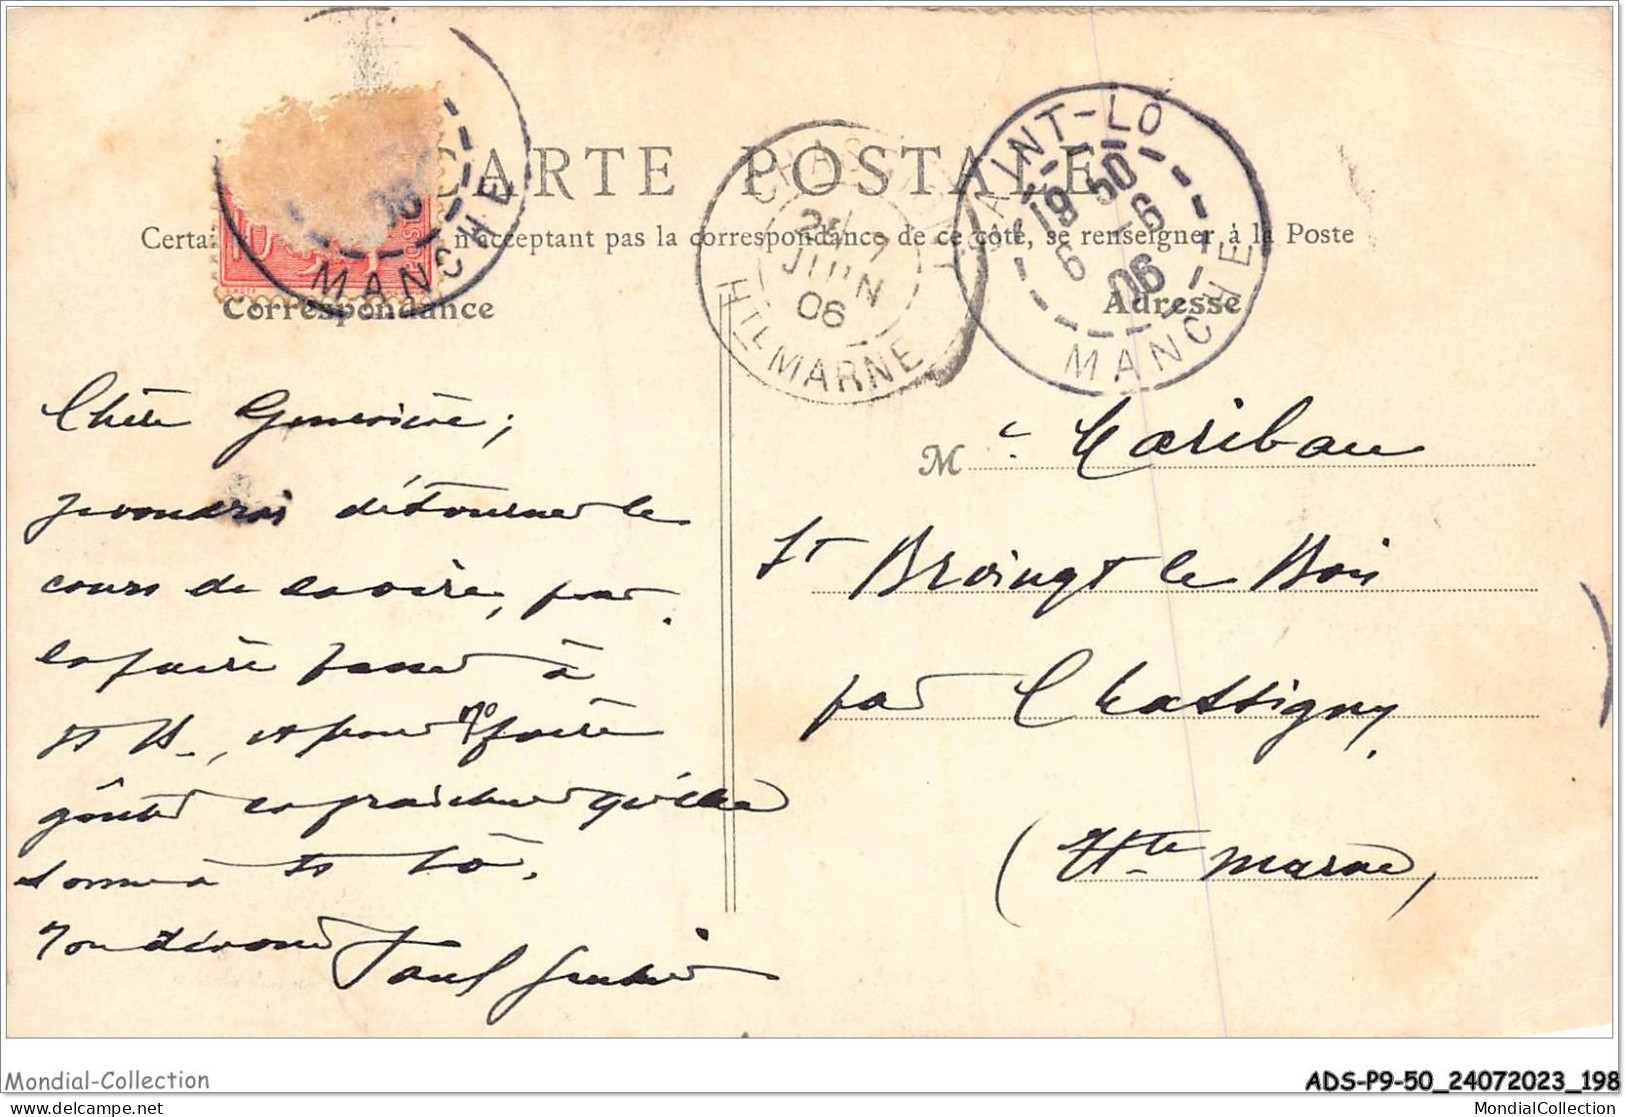 CARTE POSTALE
Certai n'acceptant pas la correspondance de ce côté, se renseigner à la Poste
Correspondance
Adresse
10
POSTES
06
MANCHE
CHASSIGNY
25
JUIN
06
HTE MARNE
SAINT-LÔ
18 50
6 -6
06
MANCHE
Chère Geneviève,
je voudrais détourner le
cours de la vire, pour
la faire passer à
St B., et pour vs faire
goûter la fraîcheur qu'elle
donne à St Lô.
Ton dévoué Paul
M e Caribau
St Broingt le Bois
par Chassigny,
(Hte Marne,
Mondial-Collection
ADS-P9-50_24072023_198
www.mondial-collection.com
MondialCollection